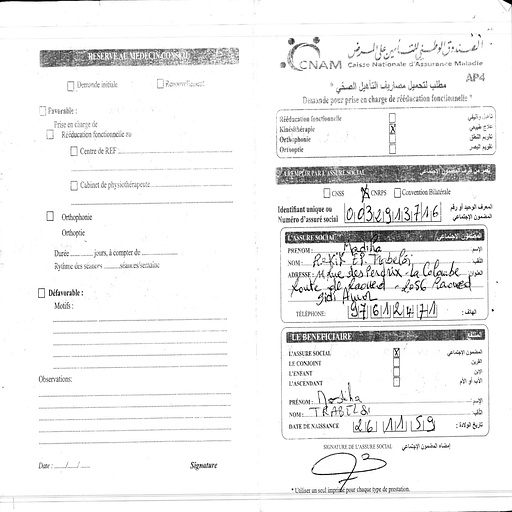 RESERVE AU MEDECIN CONSEIL
Demande initiale
Renouvellement
Favorable :
Prise en charge de
Rééducation fonctionnelle au
Centre de REF
Cabinet de physiothérapeute
Orthophonie
Orthoptie
Durée ......... jours, à compter de
Rythme des séances ......... séances/semaine
Défavorable :
Motifs :
Observations:
Date : ..../..../....
Signature
الصندوق الوطني للتأمين على المرض
CNAM Caisse Nationale d'Assurance Maladie
AP4
مطلب لتحميل مصاريف التأهيل الصحي *
Demande pour prise en charge de rééducation fonctionnelle *
Rééducation fonctionnelle
Kinésithérapie X علاج طبيعي
Orthophonie تقويم النطق
Orthoptie تقويم البصر
A REMPLIR PAR L'ASSURE SOCIAL
CNSS X CNRPS Convention Bilatérale
Identifiant unique ou المعرف الوحيد أو رقم
Numéro d'assuré social 0032913716 المضمون الاجتماعي
L'ASSURE SOCIAL المضمون الاجتماعي
PRENOM : Madiha الإسم
NOM : REKIK EP. Trabelsi اللقب
ADRESSE : 11 Rue des Perdrix - La Colombe العنوان
Route de Raoued - 2056 Raoued
Sidi Amor
TÉLÉPHONE: 97612471 الهاتف :
LE BENEFICIAIRE المنتفع
L'ASSURE SOCIAL X المضمون الاجتماعي
LE CONJOINT القرين
L'ENFANT الابن
L'ASCENDANT الأب أو الأم
PRÉNOM : Madiha الإسم
NOM : TRABELSI اللقب
DATE DE NAISSANCE 26 11 59 تاريخ الولادة :
SIGNATURE DE L'ASSURE SOCIAL إمضاء المضمون الاجتماعي
* Utiliser un seul imprimé pour chaque type de prestation.